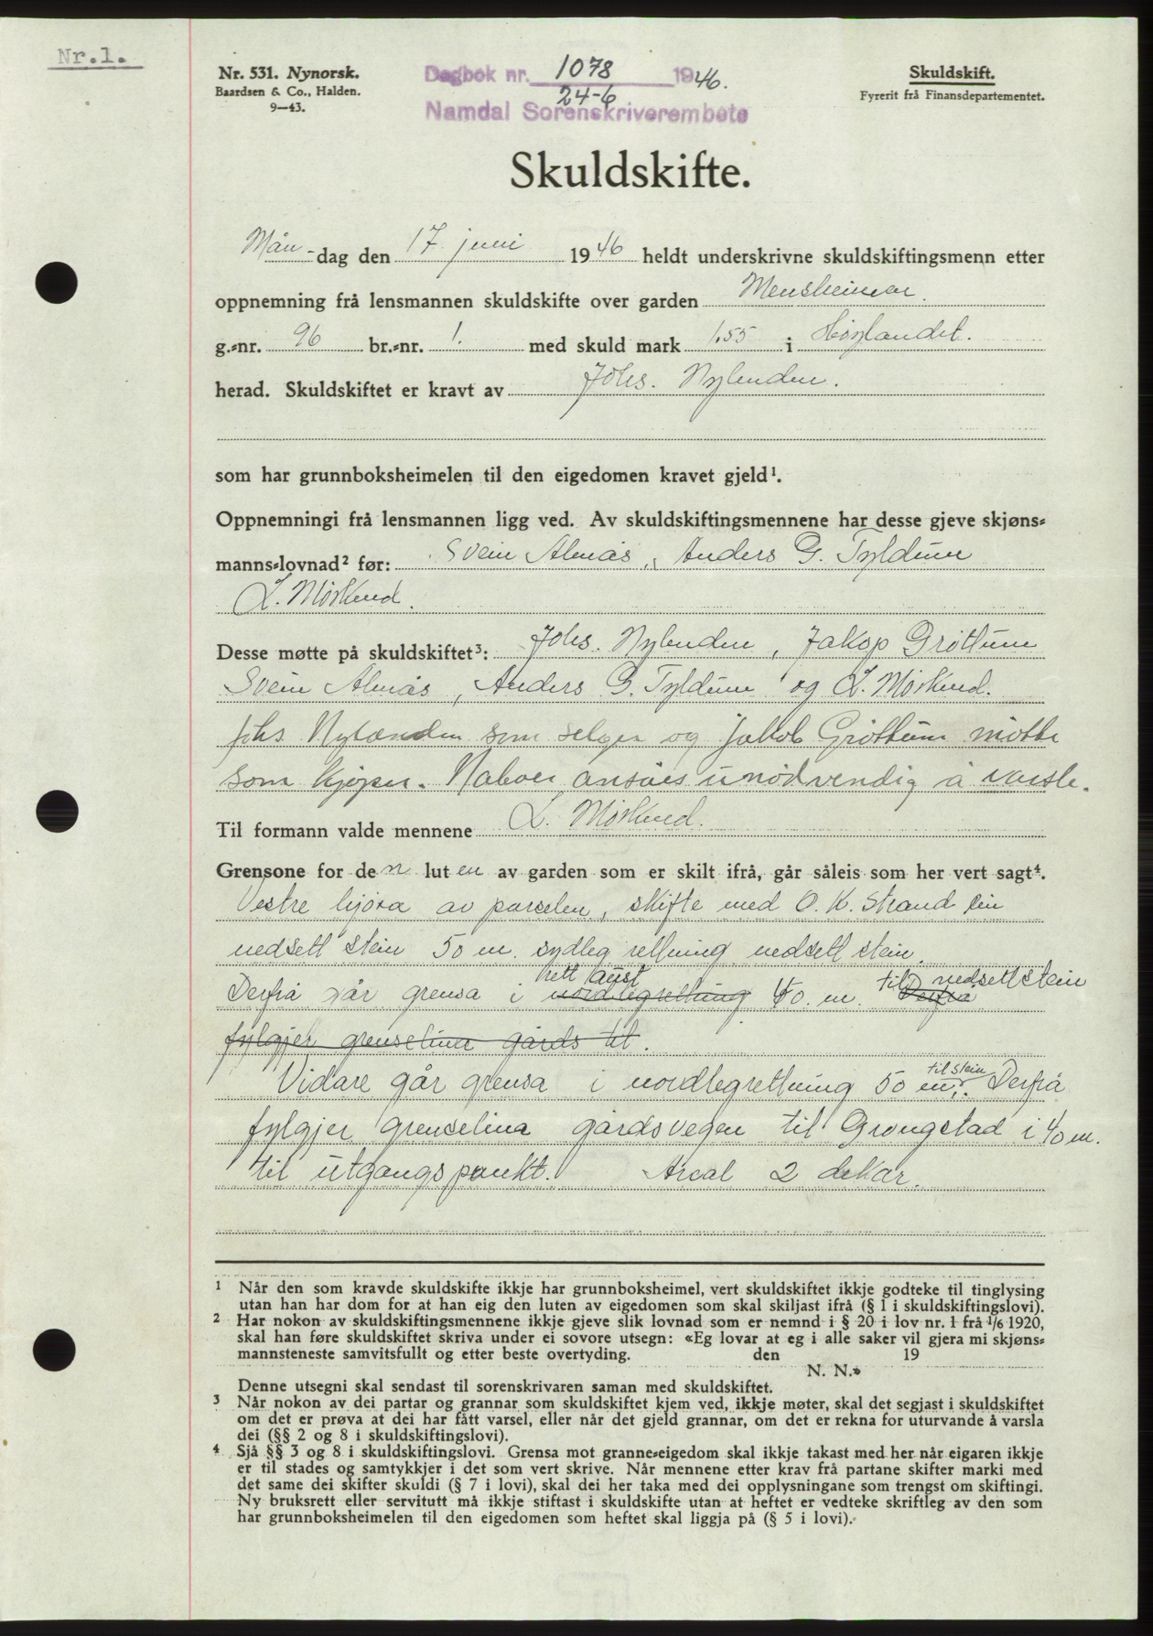 Nr.1.
Nr. 531. Nynorsk.
Baardsen & Co., Halden.
9—43.
Dagbok nr. 1078 1946.
24-6
Namdal Sorenskriverembete
Skuldskift.
Fyrerit frå Finansdepartementet.
Skuldskifte.
Mån-dag den 17. juni 1946 heldt underskrivne skuldskiftingsmenn etter
oppnemning frå lensmannen skuldskifte over garden
g.-nr. 96 br.-nr. 1. med skuld mark 1.55 i Høylandet.
herad. Skuldskiftet er kravt av Johs. Nylenden.
som har grunnboksheimelen til den eigedomen kravet gjeld¹.
Oppnemningi frå lensmannen ligg ved. Av skuldskiftingsmennene har desse gjeve skjøns-
manns-lovnad² før: Svein Almås, Anders G. Tyldum
L. Mørkved.
Desse møtte på skuldskiftet³: Johs. Nylenden, Jakop Grøttum
Svein Almås, Anders G. Tyldum og L. Mørkved.
Johs Nylænden som selger og Jakob Grøttum møtte
som kjøper. Naboer ansåes unødvendig å varsle.
Til formann valde mennene L. Mørkved.
Grensone for den luten av garden som er skilt ifrå, går såleis som her vert sagt⁴.
Vestre hjørna av parcelen, skifte med O. K. Strand ein
nedsett stein 50 m. sydleg rettning nedsett stein.
Derfrå går grensa i nordlegrettning rett aust 40. m. Derfra til nedsett stein
fylgjer grenselina gårds til.
Vidare går grensa i nordlegrettning 50 m. til stein. Derfrå
fylgjer grenselina gårdsvegen til Grongstad i 40 m.
til utgangspunkt. Areal 2 dekar.
¹ Når den som kravde skuldskifte ikkje har grunnboksheimel, vert skuldskiftet ikkje godteke til tinglysing
utan han har dom for at han eig den luten av eigedomen som skal skiljast ifrå (§ 1 i skuldskiftingslovi).
² Har nokon av skuldskiftingsmennene ikkje gjeve slik lovnad som er nemnd i § 20 i lov nr. 1 frå 1/6 1920,
skal han føre skuldskiftet skriva under ei sovore utsegn: «Eg lovar at eg i alle saker vil gjera mi skjøns-
mannsteneste samvitsfullt og etter beste overtyding. den 19
N. N.»
Denne utsegni skal sendast til sorenskrivaren saman med skuldskiftet.
³ Når nokon av dei partar og grannar som skuldskiftet kjem ved, ikkje møter, skal det segjast i skuldskiftet
om det er prøva at dei har fått varsel, eller når det gjeld grannar, om det er rekna for uturvande å varsla
dei (§§ 2 og 8 i skuldskiftingslovi).
⁴ Sjå §§ 3 og 8 i skuldskiftingslovi. Grensa mot granne-eigedom skal ikkje takast med her når eigaren ikkje
er til stades og samtykkjer i det som vert skrive. Når mennene etter krav frå partane skifter marki med
det same dei skifter skuldi (§ 7 i lovi), skal dei her taka med dei opplysningane som trengst om skiftingi.
Ny bruksrett eller servitutt må ikkje stiftast i skuldskifte utan at heftet er vedteke skriftleg av den som
har grunnboksheimelen til den eigedomen som heftet skal liggja på (§ 5 i lovi).